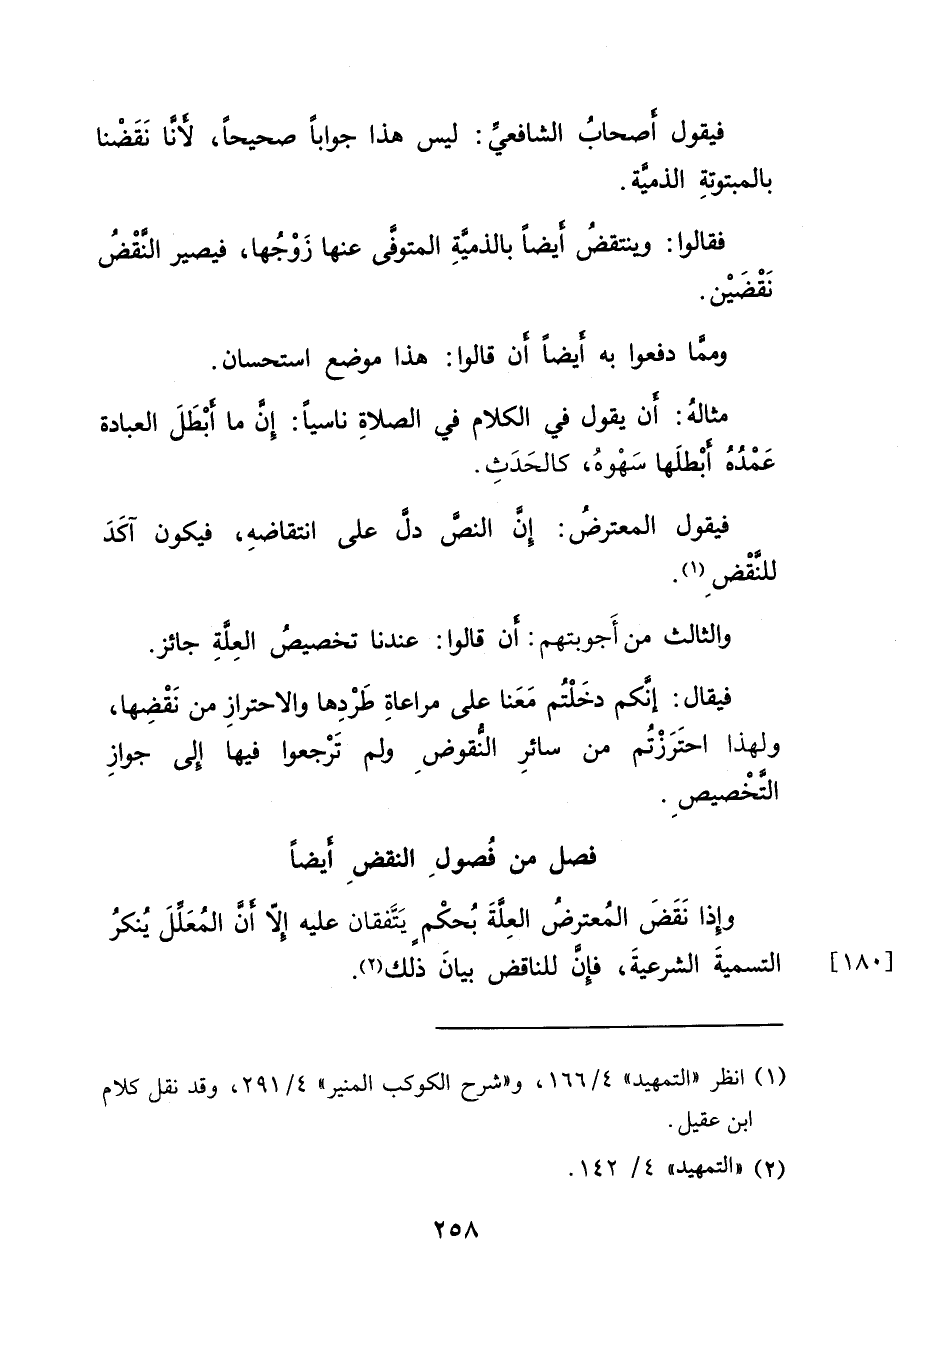 فيقول أَصحابُ الشافعيِّ: ليس هذا جواباً صحيحاً، لأَنَّا نَقَضْنا
بالمبتوتةِ الذميَّة.
فقالوا: وينتقضُ أَيضاً بالذميَّةِ المتوفَّى عنها زَوْجُها، فيصير النَّقْضُ
نَقْضَيْن.
وممَّا دفعوا به أَيضاً أَن قالوا: هذا موضع استحسان.
مثالهُ: أَن يقول في الكلام في الصلاةِ ناسياً: إِنَّ ما أَبْطَلَ العبادة
عَمْدُهُ أَبْطلَها سَهْوهُ، كالحَدَثِ.
فيقول المعترضُ: إِنَّ النصَّ دلَّ على انتقاضهِ، فيكون آكَدَ
للنَّقْضِ(١).
والثالث من أَجوبتهم: أَن قالوا: عندنا تخصيصُ العِلَّةِ جائز.
فيقال: إِنَّكم دخَلْتُم مَعَنا على مراعاةِ طَرْدِها والاحترازِ من نَقْضِها،
ولهذا احتَرَزْتُم من سائرِ النُّقوضِ ولم تَرْجعوا فيها إِلى جوازِ
التَّخْصيصِ.
فصل من فُصولِ النقضِ أَيضاً
وإِذا نَقَضَ المُعترضُ العِلَّةَ بُحكْمٍ يَتَّفقان عليه إِلّا أَنَّ المُعَلِّلَ يُنكرُ
التسميةَ الشرعيةَ، فإِنَّ للناقض بيانَ ذلك(٢).
[١٨٠]
(١) انظر «التمهيد» ٤/١٦٦، و«شرح الكوكب المنير» ٤/٢٩١، وقد نقل كلام
ابن عقيل.
(٢) «التمهيد» ٤/ ١٤٢.
٢٥٨